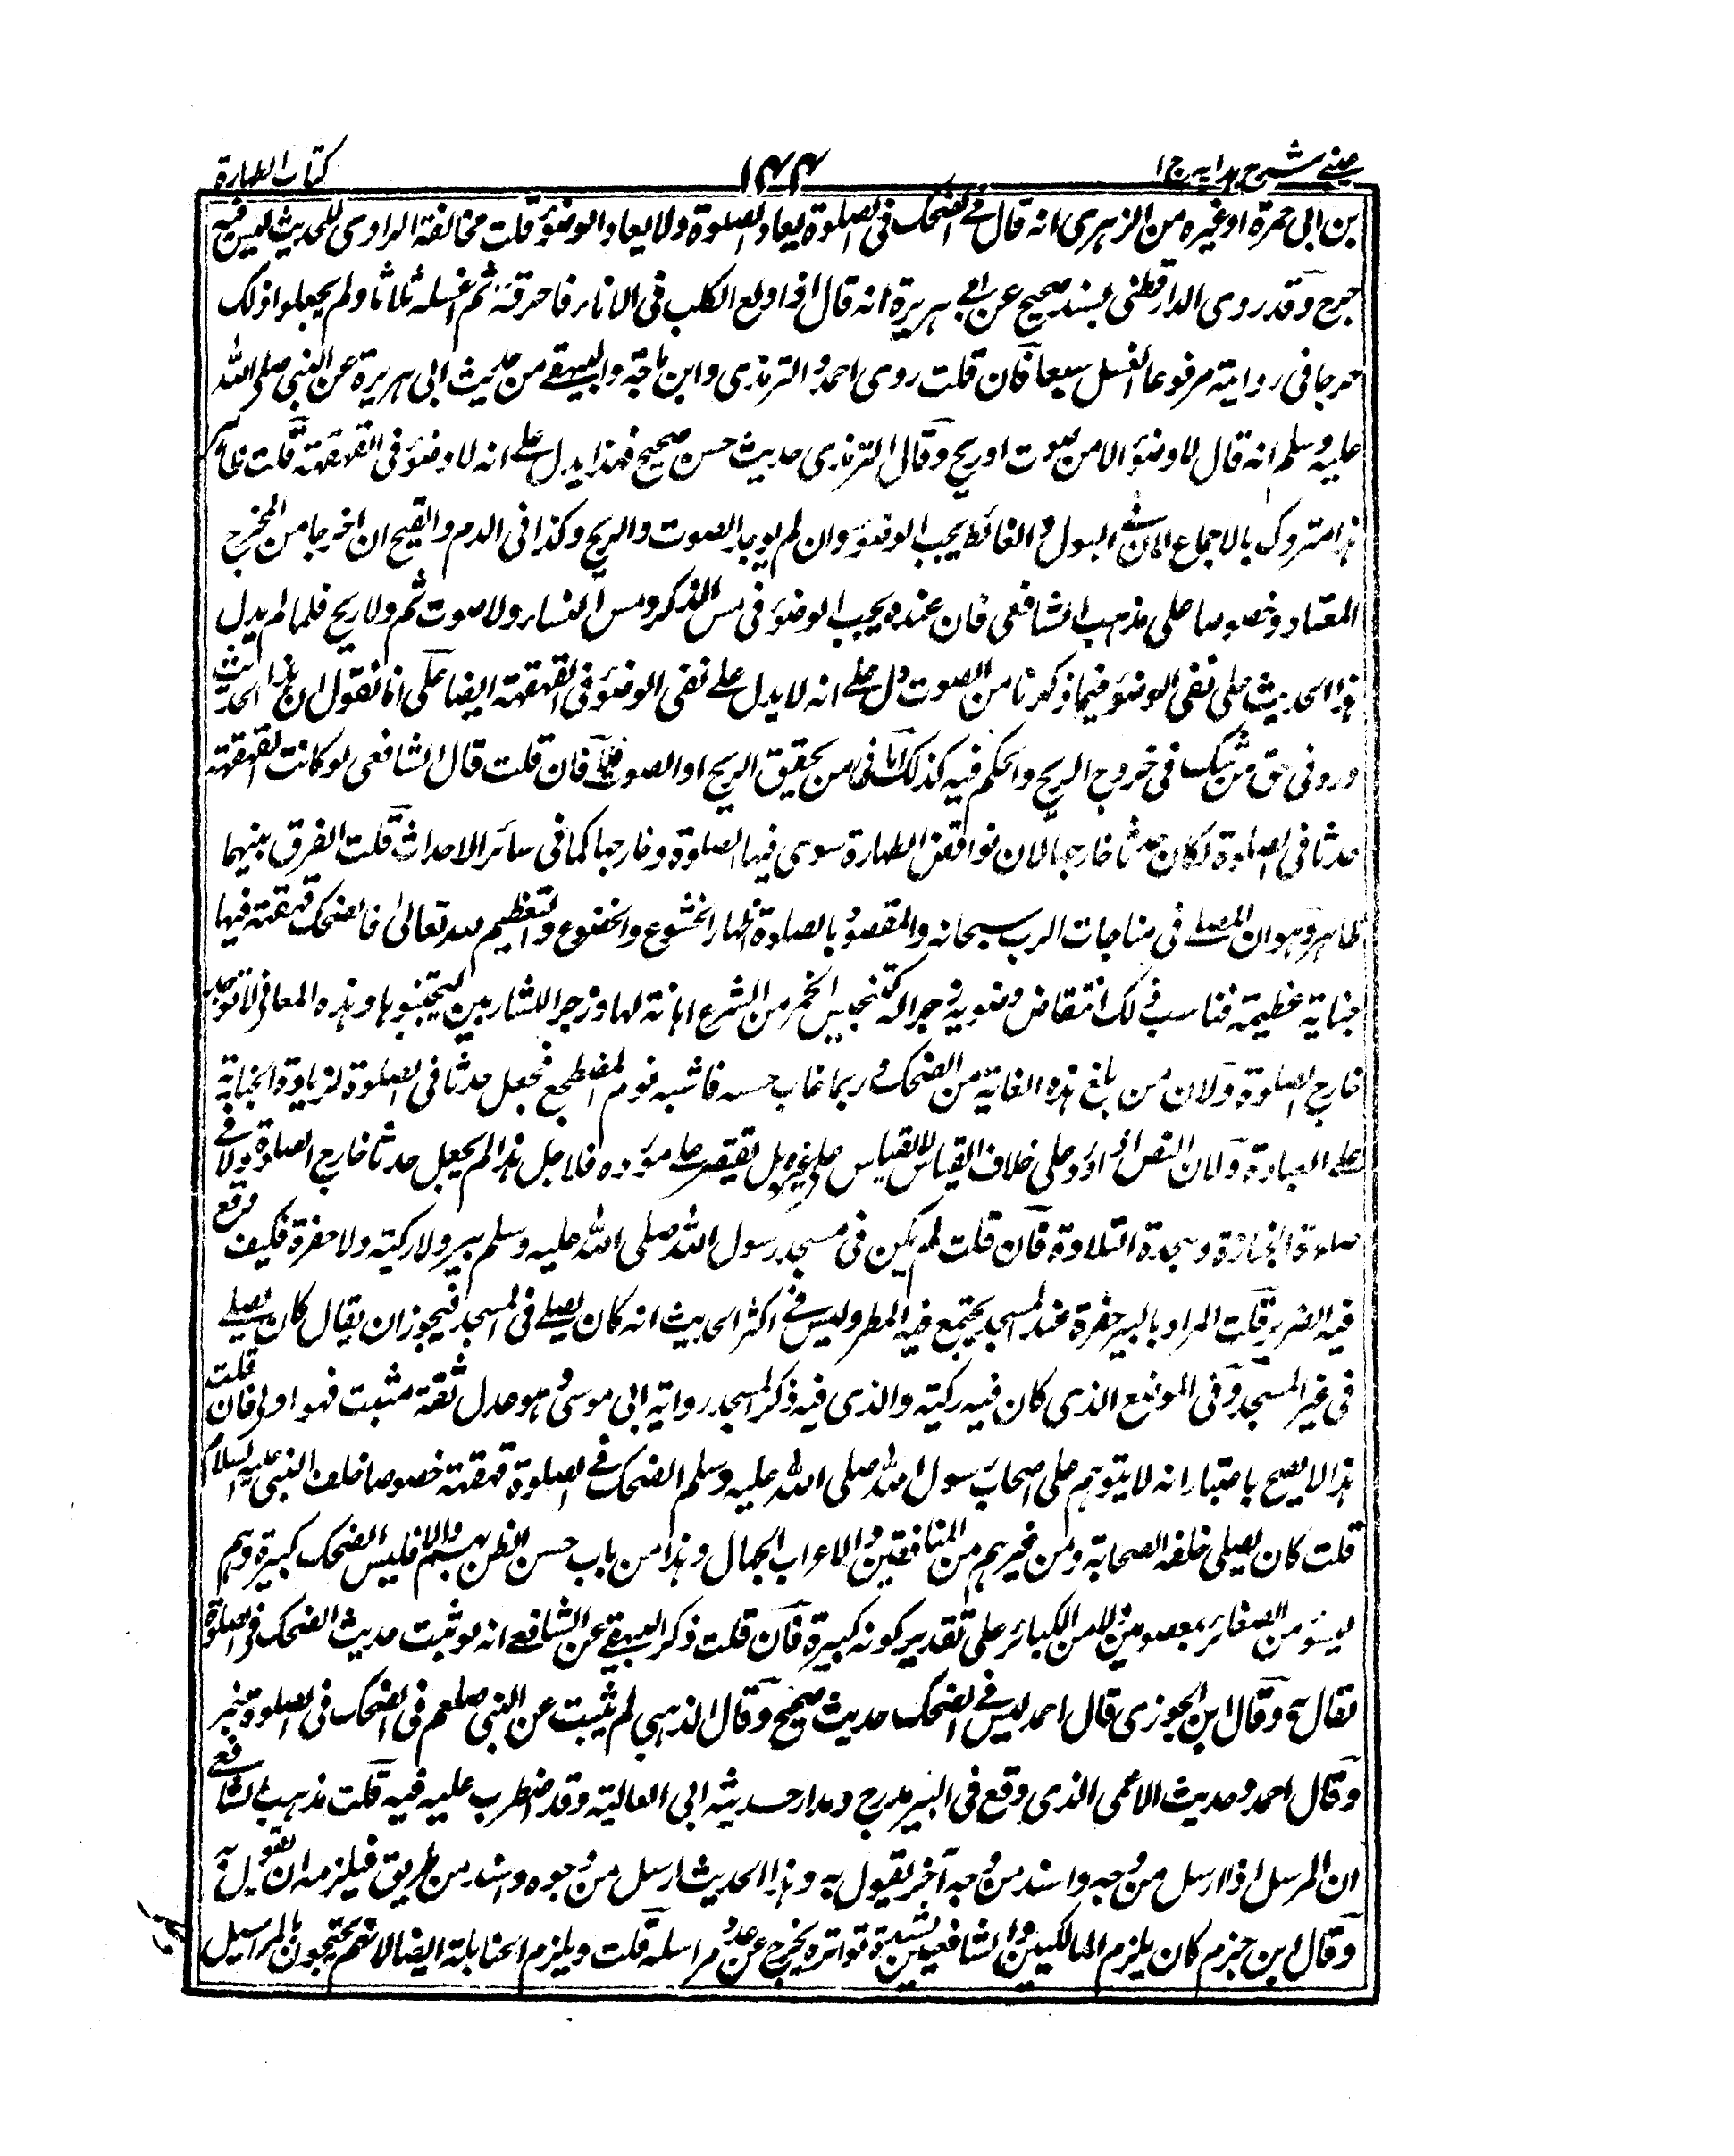 عيني شرح هدايه ج ١
١٤٤
كتاب الطهارة
بن ابى حمزة او غيره من الزهرى انه قال فى الضحك فى الصلوة يعاد الصلوة ولا يعاد الوضوٴ قلت مخالفة الراوى للحديث ليس فيه
جرح وقد روى الدارقطنى بسند صحيح عن ابى هريرة انه قال اذا ولع الكلب فى الاناء فاهرقه ثم اغسله ثلاثا ولم يجعلوا ذلك
جرحا فى روايته مرفوعا الغسل سبعا فان قلت روى احمد والترمذى وابن ماجة والبيهقى من حديث ابى هريرة عن النبى صلى الله
عليه وسلم انه قال لا وضوٴ الا من صوت او ريح وقال الترمذى حديث حسن صحيح فهذا يدل على انه لا وضوٴ فى القهقهة قلت ظاهر
هذا متروك بالاجماع لان فى البول والغائط يجب الوضوٴ وان لم يوجد الصوت والريح وكذا فى الدم والقيح ان اخرجا من المخرج
المعتاد وخصوصا على مذهب الشافعى فان عنده يجب الوضوٴ فى مس الذكر ومس النساء ولا صوت ثم ولا ريح فلما لم يدل
هذا الحديث على نفى الوضوٴ فيما ذكرنا من الصوت دل على انه لا يدل على نفى الوضوٴ فى القهقهة ايضا على انا نقول ان هذا الحديث
ورد فى حق من شك فى خروج الريح والحكم فيه كذلك اما فى من تحقيق الريح او الصوت فلا فان قلت قال الشافعى لو كانت القهقهة
حدثا فى الصلوة لكان حدثا خارجها لان نواقض الطهارة سوى فيها الصلوة وخارجها كما فى سائر الاحداث قلت الفرق بينهما
ظاهر وهو ان المصلى فى مناجات الرب سبحانه والمقصود بالصلوة اظهار الخشوع والخضوع والتعظيم لله تعالى فالضحك قهقهة فيها
جناية عظيمة فناسب ذلك انتقاض وضوءيه زجرا له كتنجيس الخمر من الشرع اهانة لها وزجرا للشاربين ليتجنبوها وهذه المعانى لا توجد
خارج الصلوة ولان من بلغ هذه الغاية من الضحك ربما غاب حسه فاشبه نوم المضطجع فجعل حدثا فى الصلوة لزيادة الجناية
على العبادة ولان النص اذا ورد على خلاف القياس لا يقاس على غيره بل يقتصر على مورده فلاجل هذا لم يجعل حدثا خارج الصلوة ولا فى
صلوة الجنازة وسجدة التلاوة فان قلت لم يكن فى مسجد رسول الله صلى الله عليه وسلم بير ولا ركية ولا حفرة فكيف وقع
فيه الضرير قلت المراد بالبير حفرة عند المسجد يجتمع فيه المطر وليس فى اكثر الحديث انه كان يصلى فى المسجد فيجوز ان يقال كان يصلى
فى غير المسجد وفى الموضع الذى كان فيه ركية والذى فيه ذكر المسجد رواية ابى موسى وهو عدل ثقة مثبت فهو اولى فان قلت
هذا لا يصح باعتبار انه لا يتوهم على اصحاب رسول الله صلى الله عليه وسلم الضحك فى الصلوة قهقهة خصوصا خلف النبى عليه السلام
قلت كان يصلى خلفه الصحابة ومن غيرهم من المنافقين والاعراب الجهال وهذا من باب حسن الظن بهم والا فليس الضحك كبيرة وهم
ليسو من الصغائر بمعصومين ولا من الكبائر على تقدير كونه كبيرة فان قلت ذكر البيهقى عن الشافعى انه لو ثبت حديث الضحك فى الصلوة
لقال به وقال ابن الجوزى قال احمد ليس فى الضحك حديث صحيح وقال الذهبى لم يثبت عن النبى صلعم فى الضحك فى الصلوة خبر
وقال احمد وحديث الاعمى الذى وقع فى البير مدرج ومدار حديثه ابى العالية وقد اضطرب عليه فيه قلت مذهب الشافعى
ان المرسل اذا ارسل من وجه واسند من وجه آخر يقول به وهذا الحديث ارسل من وجوه واسند من طريق فيلزمه ان يقول به
وقال ابن حزم كان يلزم المالكيين والشافعيين لشدة تواتره يخرج عن عدد مراسله قلت ويلزم الحنابلة ايضا لانهم يحتجون بالمراسيل